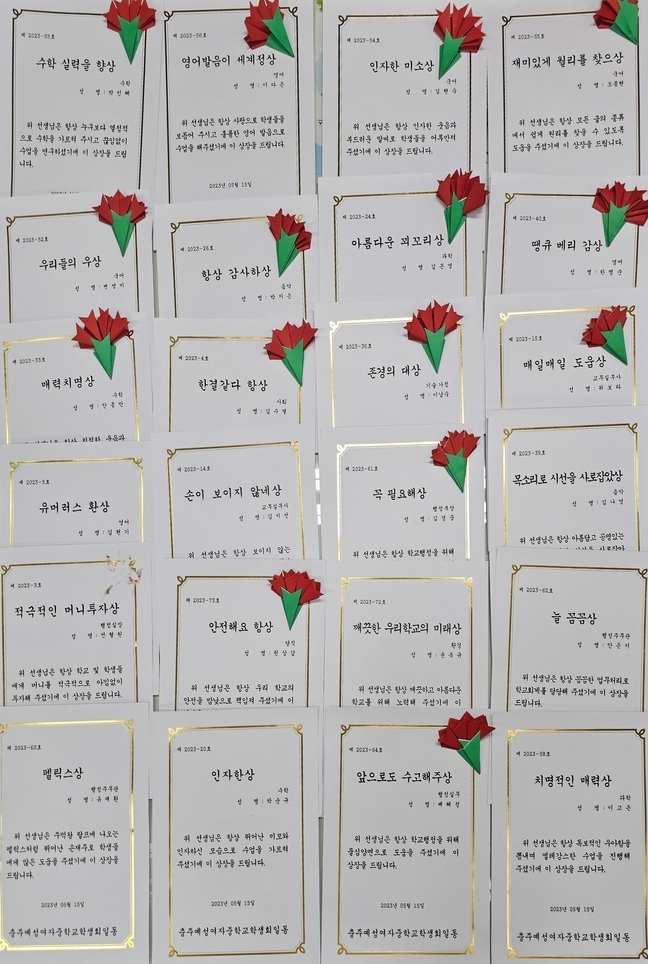 제 2023-55호
수학 실력을 향상
수학
위 선생님은 항상 누구보다 열정적
으로 수학을 가르쳐 주시고 끊임없이
수업을 연구하셨기에 이 상장을 드립
니다.
제 2023-56호
영어발음이 세계정상
영어
성 명:이다은
위 선생님은 항상 사랑으로 학생들을
보듬어 주시고 훌륭한 영어 발음으로
수업을 해주셨기에 이 상장을 드립니다.
2023년 05월 15일
제 2023-54호
인자한 미소상
국어
성 명:김현숙
위 선생님은 항상 인자한 웃음과
부드러운 말씨로 학생들을 어루만져
주셨기에 이 상장을 드립니다.
제 2023-35호
재미있게 원리를 찾으상
국어
성 명:오종현
위 선생님은 항상 모든 글의 종류
에서 쉽게 원리를 찾을 수 있도록
도움을 주셨기에 이 상장을 드립니다.
제 2023-52호
우리들의 우상
국어
제 2023-26호
항상 감사하상
음악
성 명:박지은
제 2023-24호
아름다운 꾀꼬리상
과학
성 명:김은영
제 2023-40호
땡큐 베리 감상
영어
제 2023-33호
매력치명상
수학
제 2023-4호
한결같다 항상
사회
성 명:김수영
제 2023-36호
존경의 대상
기술가정
성 명:이남숙
제 2023-15호
매일매일 도움상
교무실무사
성 명:허보라
제 2023-5호
유머러스 환상
영어
성 명:김현기
제 2023-14호
손이 보이지 않네상
교무실무사
성 명:김지선
위 선생님은 항상 보이지 않는
제 2023-61호
꼭 필요해상
행정부장
성 명:김경준
위 선생님은 항상 학교행정을 위해
제 2023-39호
목소리로 시선을 사로잡았상
음악
성 명:김나영
위 선생님은 항상 아름답고 공명있는
제 2023-3호
적극적인 머니투자상
행정실장
성 명:전형원
위 선생님은 항상 학교 및 학생들
에게 머니를 적극적으로 아낌없이
투자해 주셨기에 이 상장을 드립니다.
제 2023-73호
안전해요 항상
당직
성 명:원상갑
위 선생님은 항상 우리 학교의
안전을 밤낮으로 책임져 주셨기에 이
제 2023-72호
깨끗한 우리학교의 미래상
환경
위 선생님은 항상 깨끗하고 아름다운
학교를 위해 노력해 주셨기에 이
제 2023-62호
늘 꼼꼼상
행정주무관
성 명:안은지
위 선생님은 항상 꼼꼼한 업무처리로
학교회계를 담당해 주셨기에 이 상장을
드립니다.
제 2023-63호
펠릭스상
행정주무관
성 명:유재환
위 선생님은 주먹왕 랄프에 나오는
펠릭스처럼 뛰어난 손재주로 학생들
에게 많은 도움을 주셨기에 이 상장을
드립니다.
2023년 05월 15일
충주예성여자중학교학생회일동
제 2023-20호
인자한상
수학
성 명:박순규
위 선생님은 항상 뛰어난 미모와
인자하신 모습으로 수업을 가르쳐
주셨기에 이 상장을 드립니다.
2023년 05월 15일
충주예성여자중학교학생회일동
제 2023-64호
앞으로도 수고해주상
행정실무
성 명:배혜정
위 선생님은 항상 학교행정을 위해
물심양면으로 도움을 주셨기에 이
상장을 드립니다.
2023년 05월 15일
충주예성여자중학교학생회일동
제 2023-38호
치명적인 매력상
과학
성 명:이고은
위 선생님은 항상 독보적인 우아함을
뽐내며 엘레강스한 수업을 진행해
주셨기에 이 상장을 드립니다.
2023년 05월 15일
충주예성여자중학교학생회일동